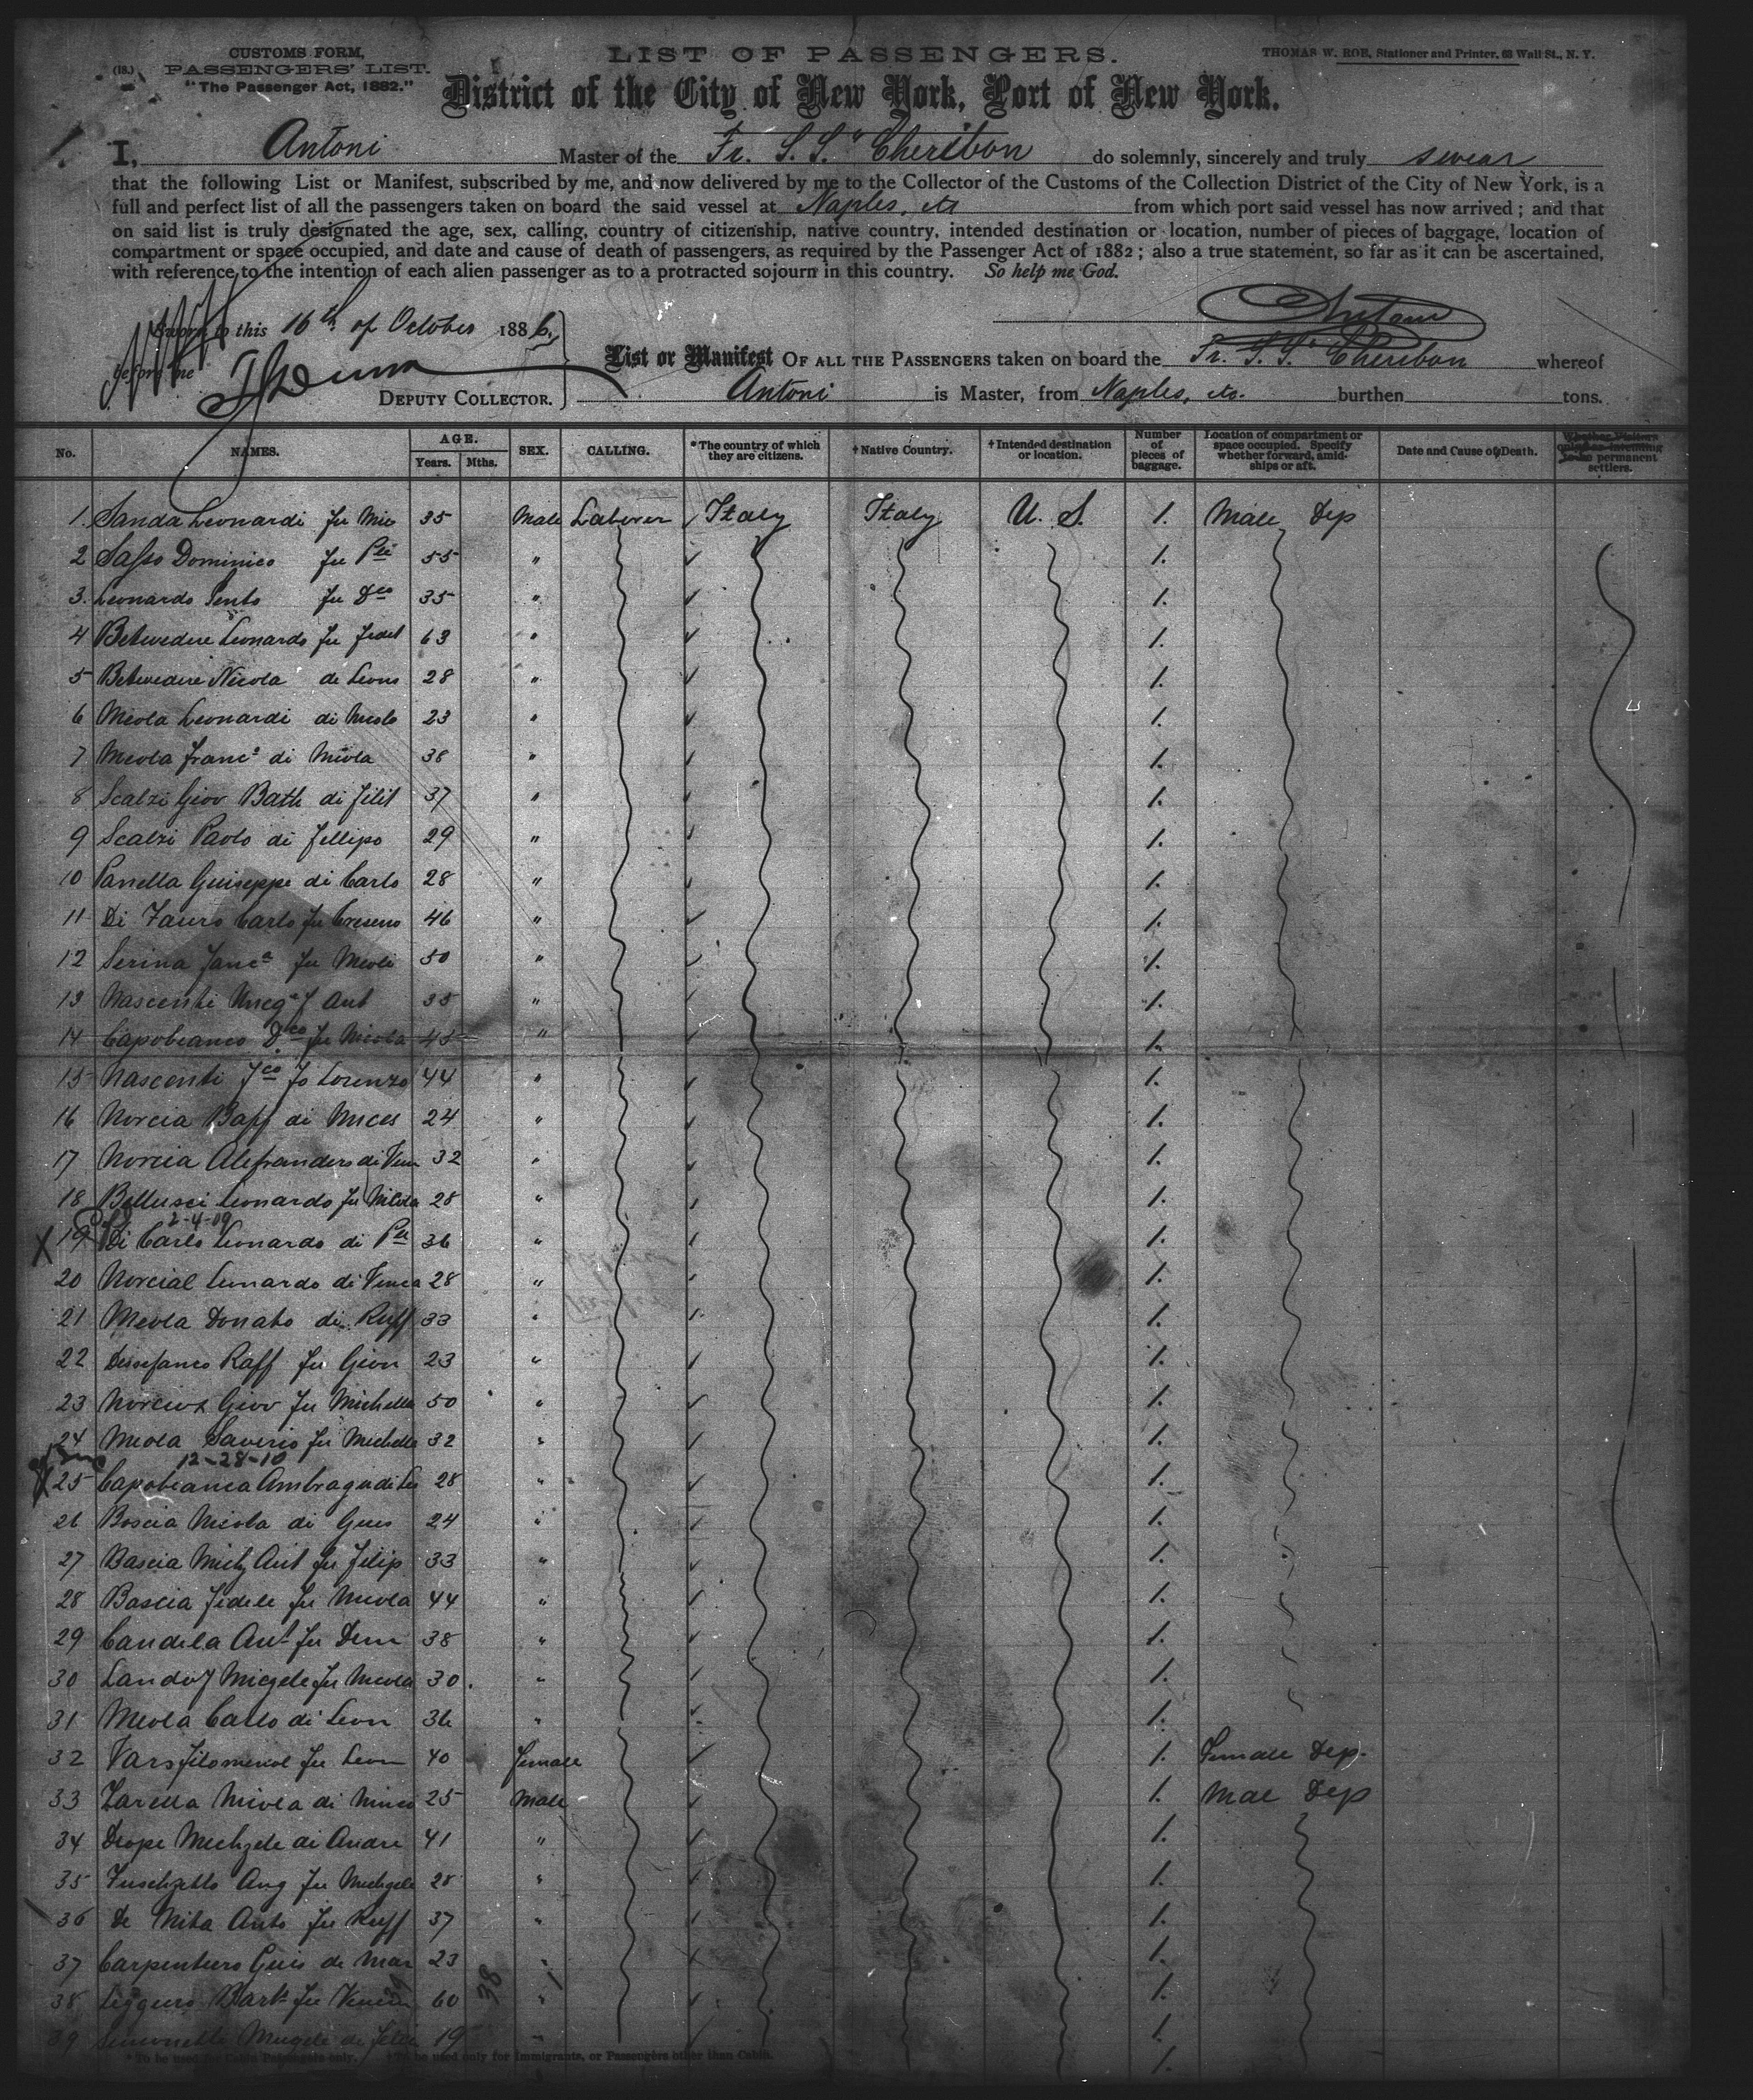 CUSTOMS FORM,
(18.) PASSENGERS' LIST.
"The Passenger Act, 1882."
LIST OF PASSENGERS.
THOMAS W. ROE, Stationer and Printer, 63 Wall St., N. Y.
District of the City of New York, Port of New York.
I, Antoni Master of the Fr. S.S. "Cheribon do solemnly, sincerely and truly swear
that the following List or Manifest, subscribed by me, and now delivered by me to the Collector of the Customs of the Collection District of the City of New York, is a
full and perfect list of all the passengers taken on board the said vessel at Naples, etc from which port said vessel has now arrived; and that
on said list is truly designated the age, sex, calling, country of citizenship, native country, intended destination or location, number of pieces of baggage, location of
compartment or space occupied, and date and cause of death of passengers, as required by the Passenger Act of 1882; also a true statement, so far as it can be ascertained,
with reference to the intention of each alien passenger as to a protracted sojourn in this country. So help me God.
Antoni
Sworn to this 16th of October 1886,
before me
List or Manifest OF ALL THE PASSENGERS taken on board the Fr. S.S. Cheribon whereof
DEPUTY COLLECTOR. Antoni is Master, from Naples, etc. burthen tons.
No. NAMES. AGE. Years. Mths. SEX. CALLING. *The country of which they are citizens. †Native Country. †Intended destination or location. Number of pieces of baggage. Location of compartment or space occupied. Specify whether forward, amidships or aft. Date and Cause of Death. permanent settlers.
1. Sanda Leonardi fu Mic 35 Male Laborer Italy Italy U. S. 1. Male Dep
2 Sasso Dominico fu Pte 55 " 1.
3. Leonardo Sento fu Dco 35 " 1.
4 Belvedere Leonardo fu Fedel 63 " 1.
5 Belvedere Nicola di Leons 28 " 1.
6 Meola Leonardi di Nicola 23 " 1.
7 Meola Franco di Nicola 38 " 1.
8 Scalzi Giov Batt di Filit 37 " 1.
9 Scalzi Paolo di Fellipo 29 " 1.
10 Panella Guiseppe di Carlo 28 " 1.
11 Di Fauro Carlo fu 46 " 1.
12 Serina fu Meoli 50 " 1.
13 Nascenti f Ant 35 " 1.
14 Capobianco Dco fu Nicola 45 " 1.
15 Nascenti fo Lorenzo 44 " 1.
16 Norcia Raff di Mices 24 " 1.
17 Norcia Alesandero di Ven 32 " 1.
18 Bellusci Leonardo fu Nicola 28 " 1.
2-4-09
X 19 Di Carlo Leonardo di Pte 36 " 1.
20 Norcial Leonardo di Vinca 28 " 1.
21 Meola Donato di Ruff 33 " 1.
22 Raff fu Giov 23 " 1.
23 Norcia Giov fu Michelle 50 " 1.
24 Meola Saverio fu Michelle 32 " 1.
12-28-10
X 25 Capobianca di Le 28 " 1.
26 Boscia Nicola di Gius 24 " 1.
27 Bascia Mich Ant fu Filip 33 " 1.
28 Bascia Fidele fu Nicola 44 " 1.
29 Candela Ant fu Dom 38 " 1.
30 Landof Micgele fu Nicola 30. " 1.
31 Meola Carlo di Leon 36 " 1.
32 Vars Filomenol fu Leon 40 Female 1. Female Dep.
33 Zarella Nicola di 25 Male 1. Mae Dep
34 Drope Mechgele di Andre 41 " 1.
35 Ang fu Michgele 28 " 1.
36 De Nita Anto fu Ruff 37 " 1.
37 Carpentiero Guis de Mar 23 " 1.
38 Leggero Bart fu 60 38 " 1.
39 Simonelli de 19 1.
1.
*To be used for Cabin Passengers only. †To be used only for Immigrants, or Passengers other than Cabin.